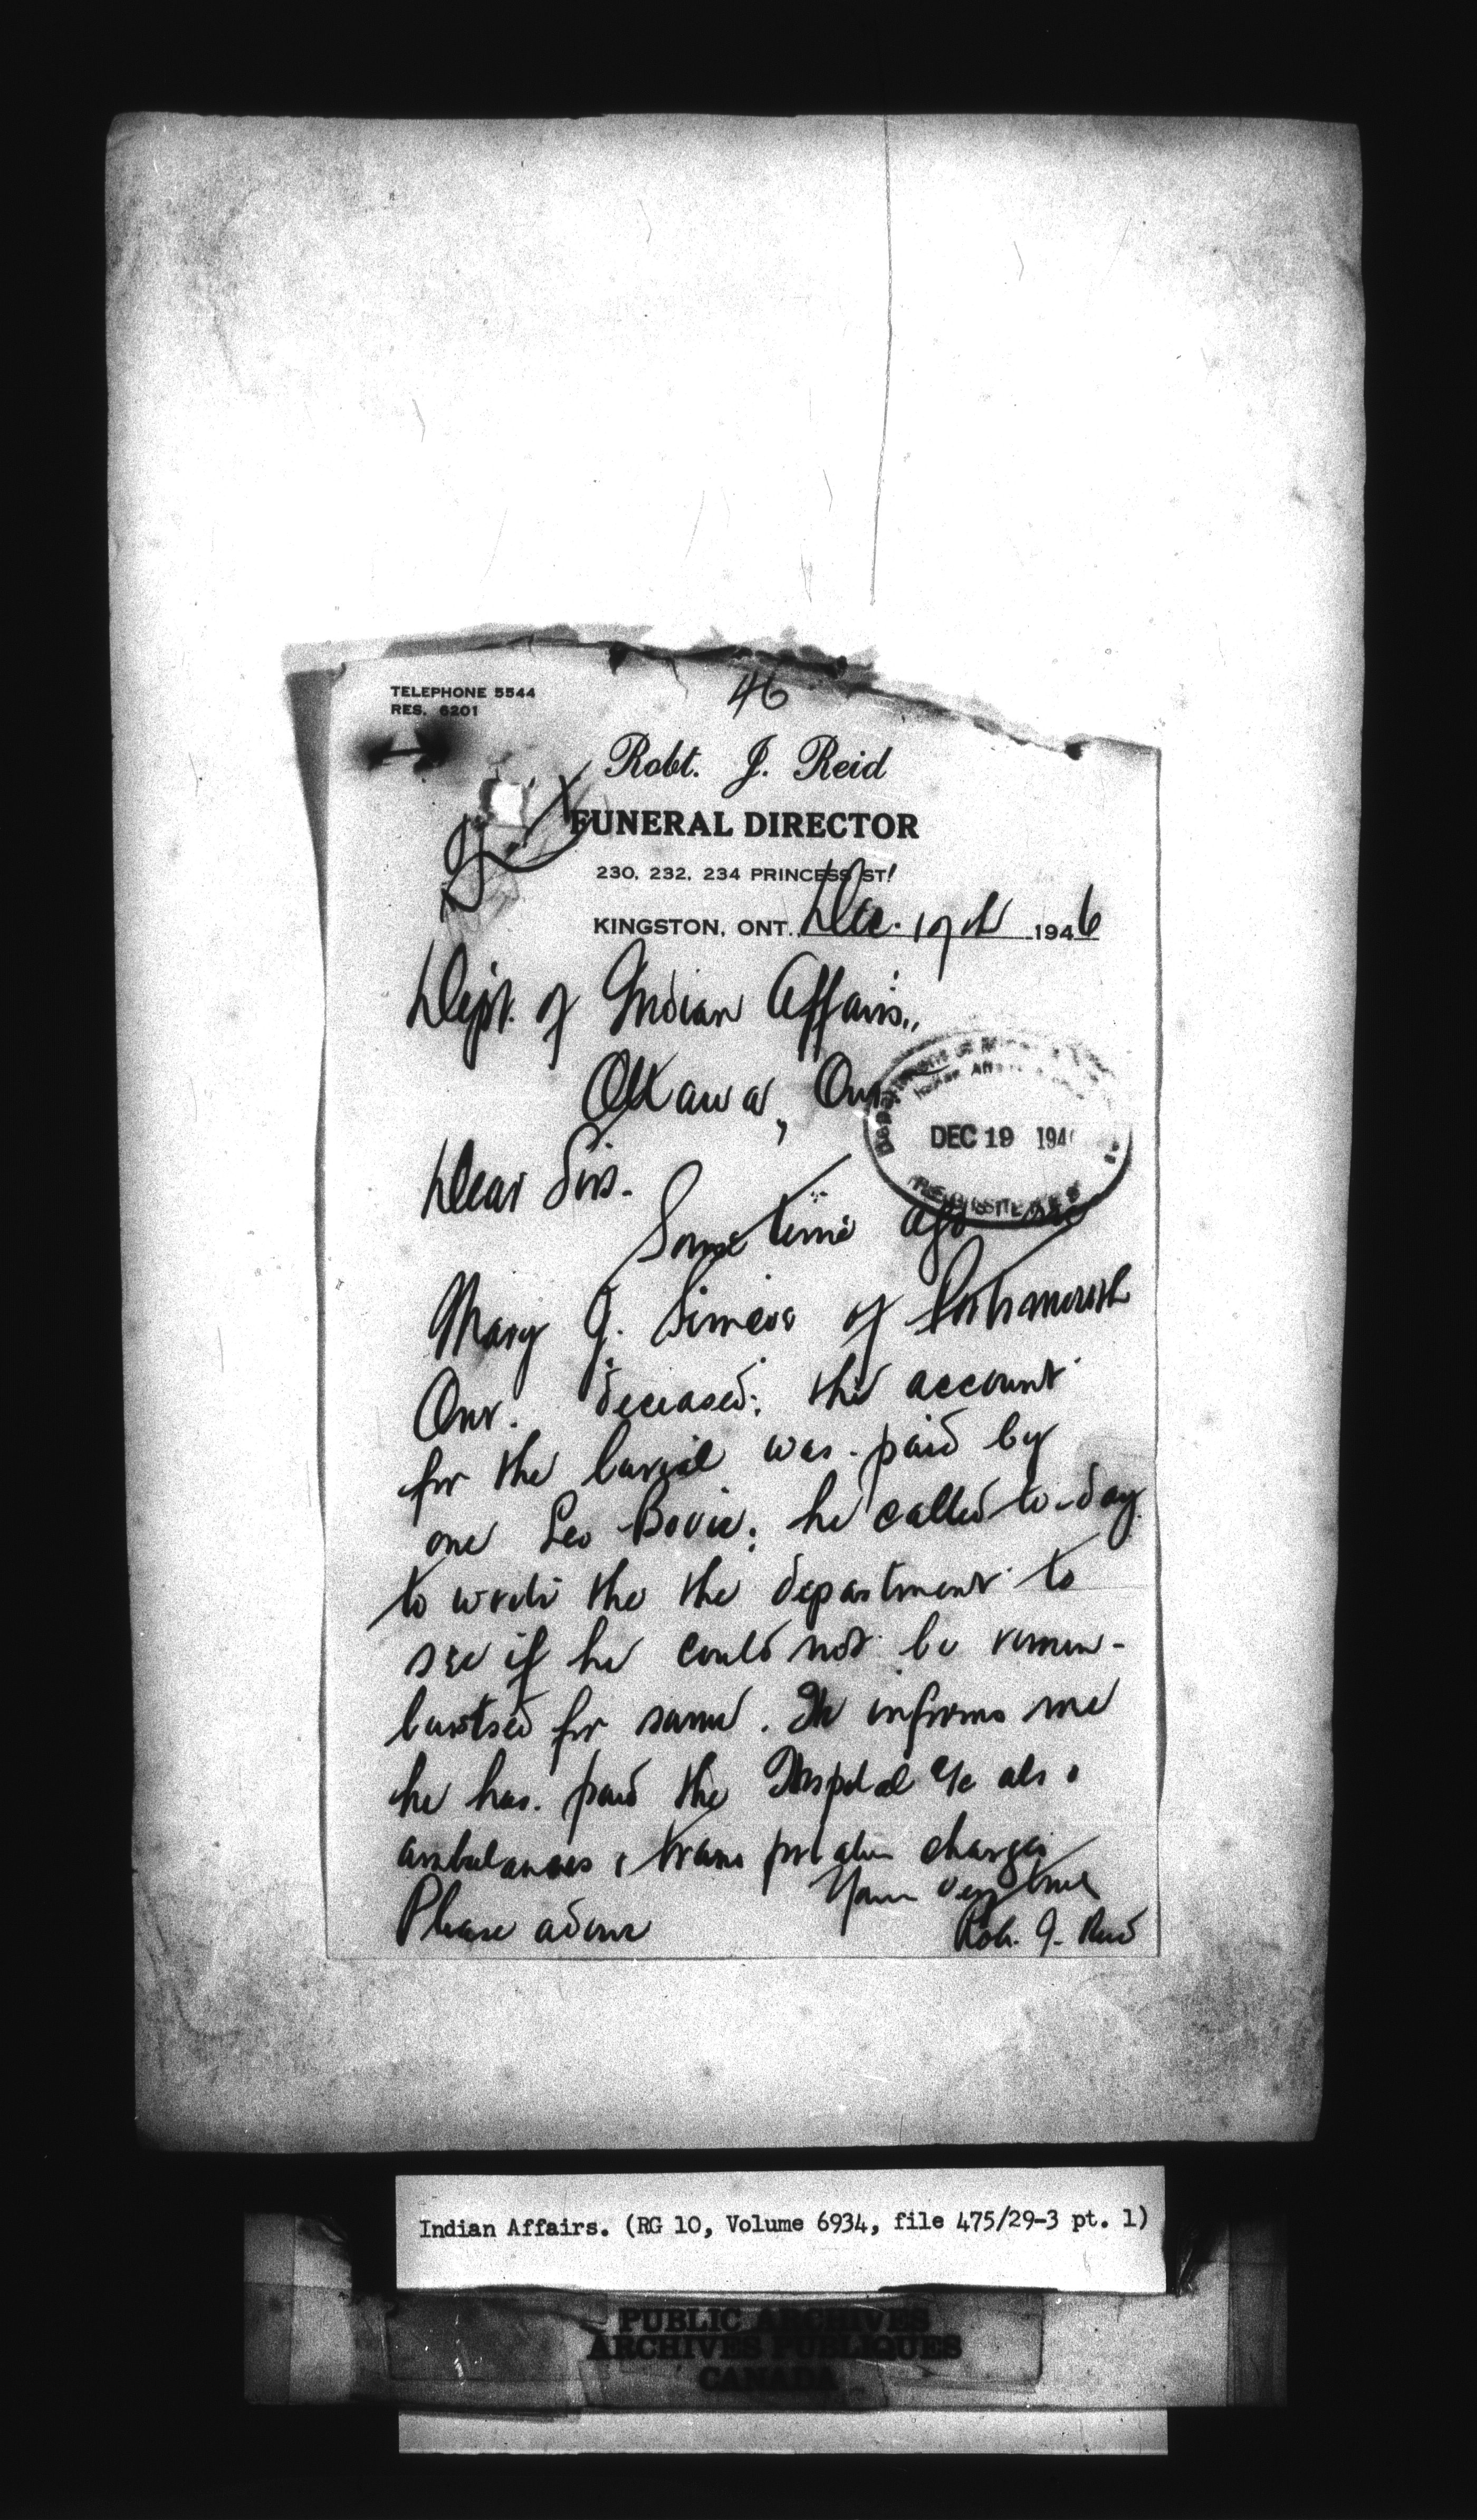 TELEPHONE 5544
RES. 6201
46
Robt. J. Reid
FUNERAL DIRECTOR
230, 232, 234 PRINCESS ST.
KINGSTON, ONT. Dec. 17th 1946
Dept. of Indian Affairs,
Ottawa, Ont
DEC 19 194
Dear Sirs.
Some time ago
Mary J. of Portsmouth
Ont. deceased; the account
for the burial was paid by
one Leo Bovie; he called to-day
to write the the department to
see if he could not be remem-
bursed for same. He informs me
he has paid the Hospital a/c also
ambulances & transportation charges
Yours very truly
Please advise
Robt. J. Reid
Indian Affairs. (RG 10, Volume 6934, file 475/29-3 pt. 1)
PUBLIC ARCHIVES
ARCHIVES PUBLIQUES
CANADA